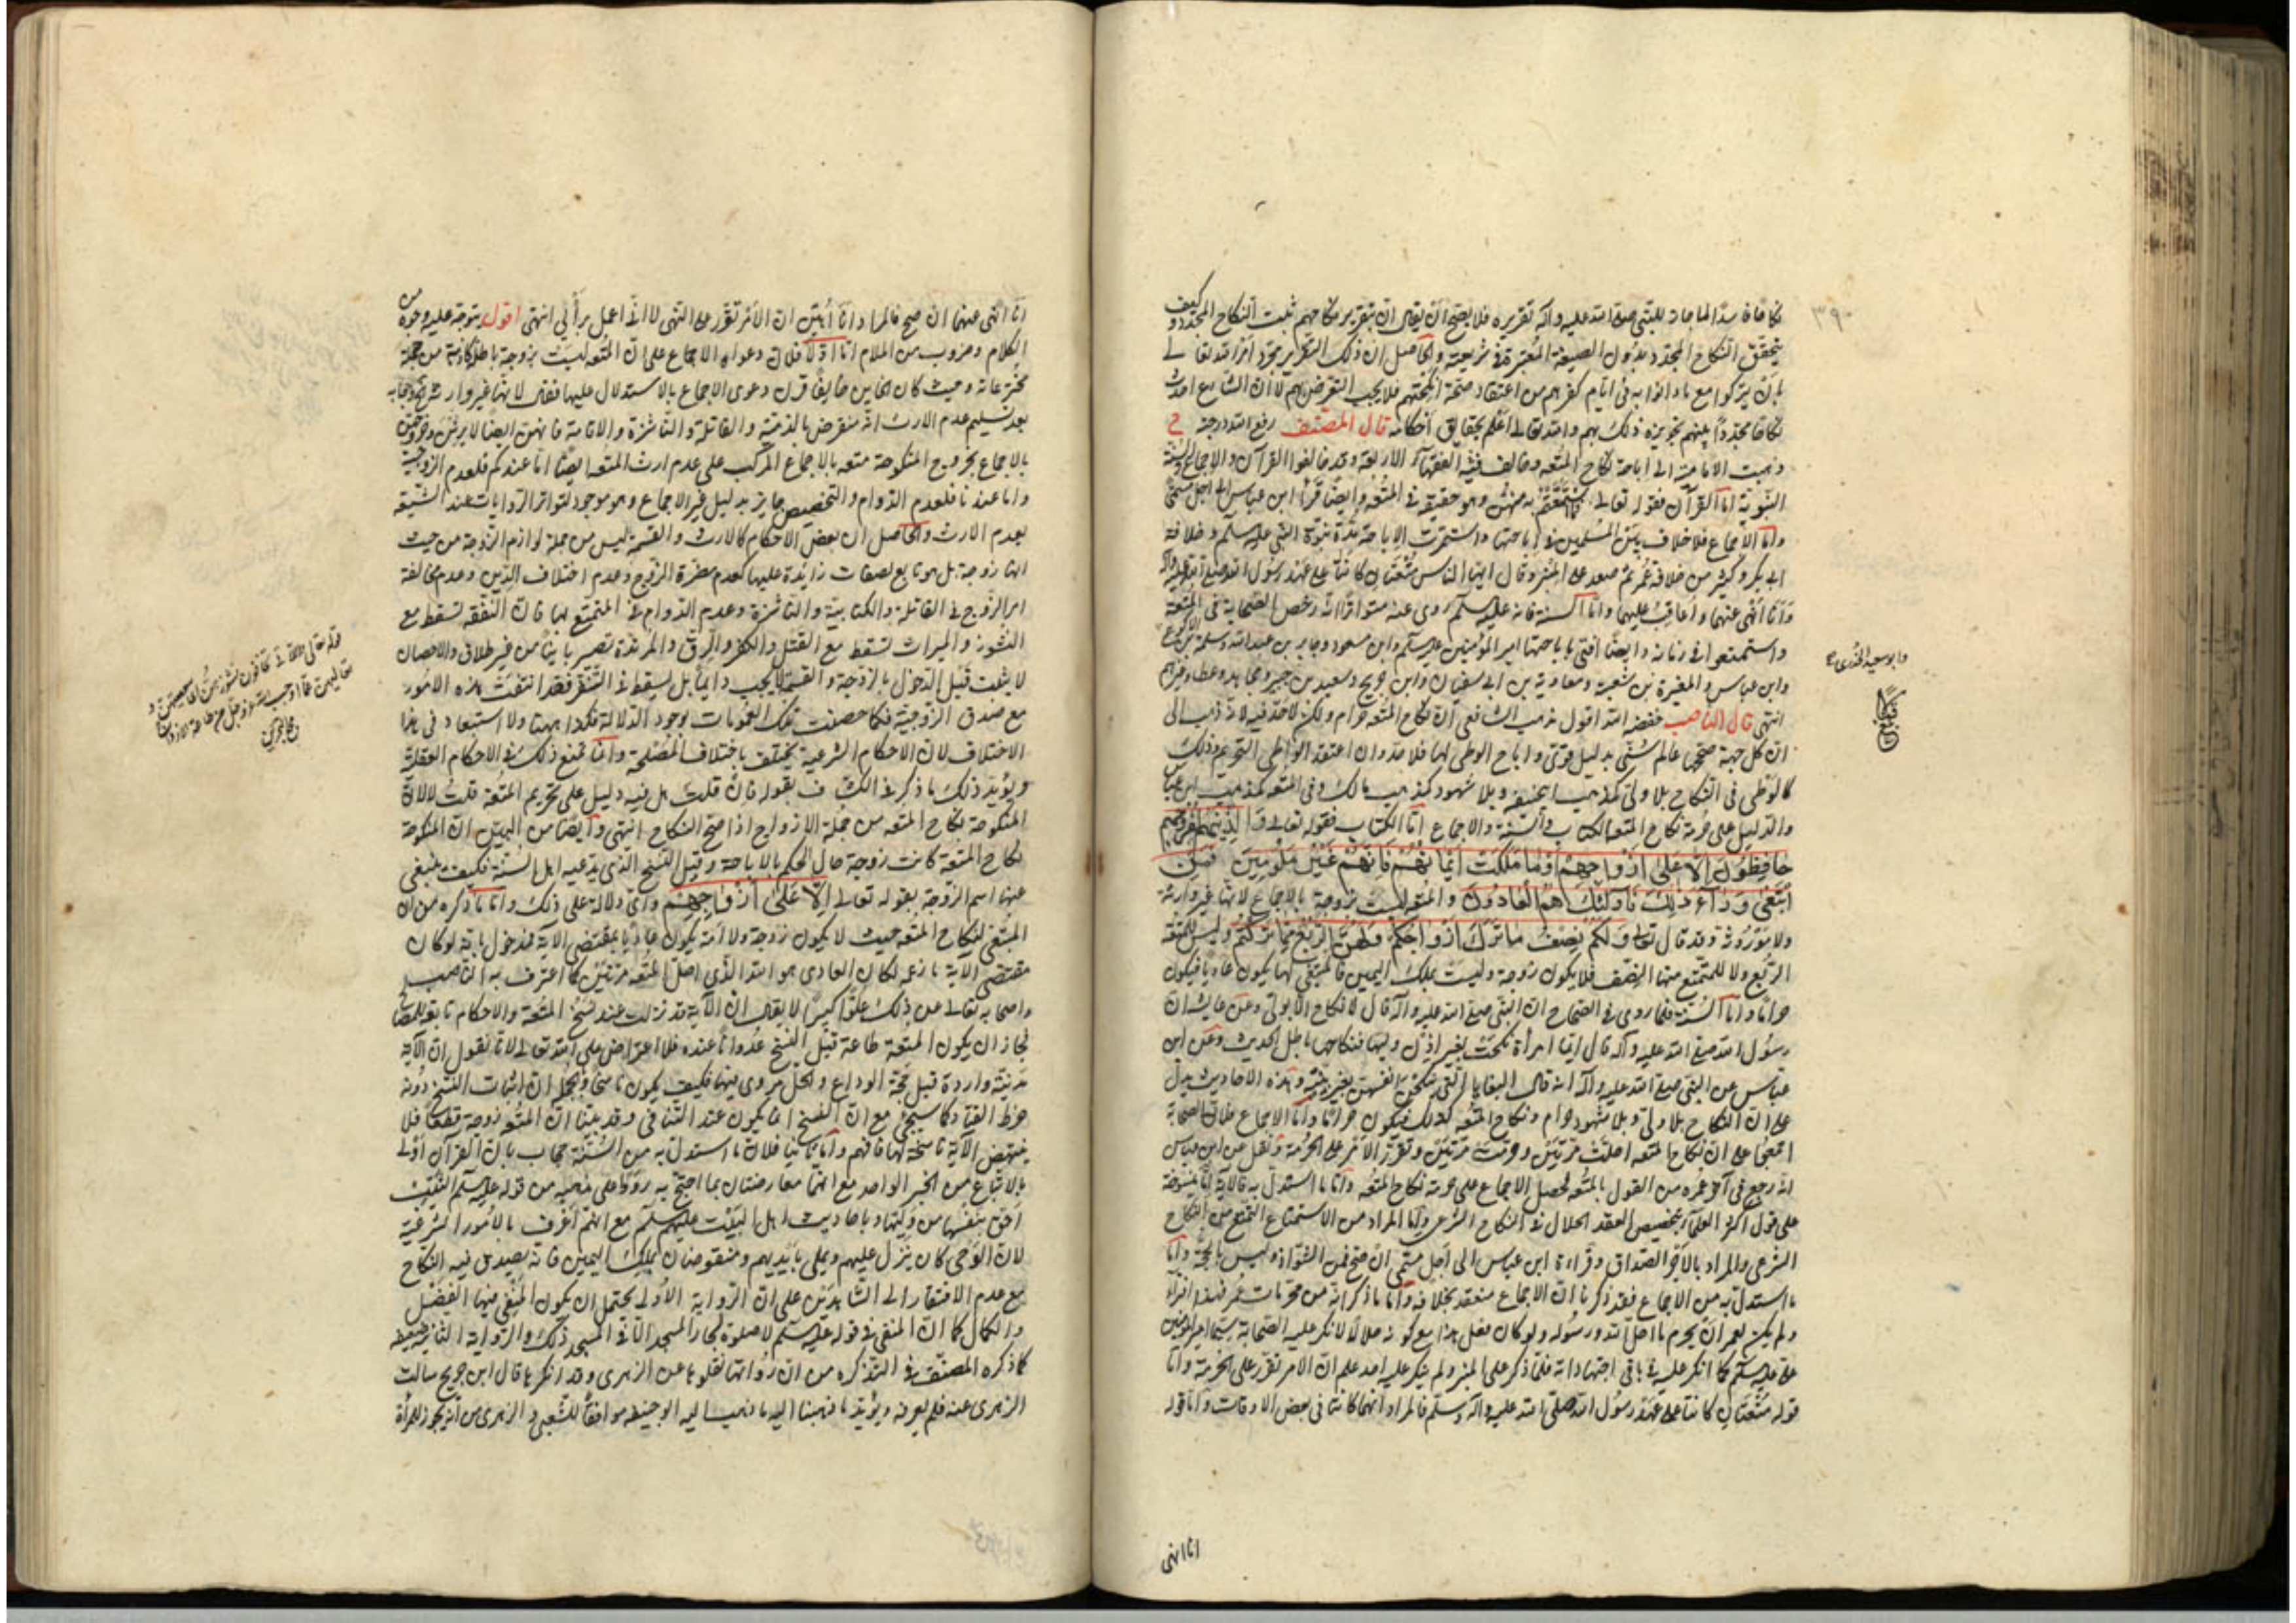 ٣٩٠
نكاحا فاسدا لما جاز للنبي صلى الله عليه وآله تقريره فلا يصح أن يقال ان بتقرير نكاحهم ثبت النكاح المجدد وكيف
يتحقق النكاح المجدد بدون الصيغة المعتبرة في شريعته والحاصل ان ذلك التقرير مجرد امر الله تعالى
بان يتركوا مع ما دانوا به في ايام كفرهم من اعتقاد صحة انكحتهم فلا يجب التعرض لهم لا ان الشارع احدث
نكاحا مجددا بينهم بتجويزه ذلك بهم والله تعالى اعلم بحقايق أحكامه قال المصنف رفع الله درجته
ذهبت الامامية الى اباحة نكاح المتعه وخالف فيه الفقهاء الاربعة وقد خالفوا القرآن والاجماع والسنة
النبوية اما القرآن فقوله تعالى فما استمتعتم به منهن وهو حقيقة في المتعه وايضا قرأ ابن عباس الى اجل مسمى
واما الاجماع فلا خلاف بين المسلمين في اباحتها واستمرت الاباحة مدة نبوة النبي عليه السلم وخلافة
ابي بكر وكثير من خلافة عمر ثم صعد على المنبر وقال ايها الناس متعتان كانتا على عهد رسول الله صلى الله عليه وآله
وأنا أنهى عنهما واعاقب عليهما واما السنة فانه عليه السلم روى عنه متواترا انه رخص الصحابة في المتعة
واستمتعوا في زمانه وايضا افتى باباحتها امير المؤمنين عليه السلم وابن مسعود وجابر بن عبد الله وسلمة بن الاكوع
وابن عباس والمغيرة بن شعبة ومعاوية بن ابي سفيان وابن جريج وسعيد بن جبير ومجاهد وعطاء وغيرهم
انتهى قال الناصب خفضه الله اقول مذهب الشافعي ان نكاح المتعه حرام ولكن لا حد فيه لانه ذهب الى
ان كل جهة صححها عالم سني بدليل قوي واباح الوطي لها فلا حد وان اعتقد الواطي التحريم وذلك
كالوطي في النكاح بلا ولي كمذهب ابي حنيفه وبلا شهود كمذهب مالك وفي المتعه كمذهب ابن عباس
والدليل على حرمة نكاح المتعه الكتاب والسنة والاجماع اما الكتاب فقوله تعالى والذين هم لفروجهم
حافظون إلا على أزواجهم أو ما ملكت أيمانهم فإنهم غير ملومين فمن
ابتغى وراء ذلك فأولئك هم العادون والمتعه ليست بزوجة بالاجماع لانها غير وارثة
ولا موروثة وقد قال تعالى ولكم نصف ما ترك أزواجكم ولهن الربع مما تركتم وليس للمتعة
الربع ولا للمتمتع منها النصف فلا يكون زوجة وليست بملك اليمين فالمبتغي لها يكون عاديا فيكون
حراما واما السنة فلما روى في الصحاح ان النبي صلى الله عليه وآله قال لا نكاح الا بولي وعن عايشة ان
رسول الله صلى الله عليه وآله قال ايما امرأة نكحت بغير اذن وليها فنكاحها باطل الحديث وعن ابن
عباس عن النبي صلى الله عليه وآله انه قال البغايا التي ينكحن انفسهن بغير بينة وهذه الاحاديث يدل
على ان النكاح بلا ولي وبلا شهود حرام ونكاح المتعه كذلك فيكون حراما واما الاجماع فان الصحابة
اجمعوا على ان نكاح المتعه احلت مرتين وحرمت مرتين وتقرر الامر على الحرمة ونقل عن ابن عباس
انه رجع في آخر عمره من القول بالمتعه فحصل الاجماع على حرمة نكاح المتعه واما ما استدل به فالآية انها منسوخة
على قول اكثر العلماء بتخصيص العقد الحلال في النكاح الشرعي واما المراد من الاستمتاع التمتع من النكاح
الشرعي والمراد بالاجر الصداق وقراءة ابن عباس الى اجل مسمى ان صح فمن الشواذ وليس بحجة واما
ما استدل به من الاجماع فقد ذكرنا ان الاجماع منعقد بخلافه واما ما ذكر انه من محرمات عمر فهذا افتراء
ولم يكن لعمر ان يحرم ما احل الله ورسوله ولو كان فعل هذا مع كونه حلالا لانكر عليه الصحابة سيما امير المؤمنين
علي عليه السلم كما انكر عليه في باقي اجتهاداته فلما ذكر على المنبر ولم ينكر عليه احد علم ان الامر تقرر على الحرمة واما
قوله متعتان كانتا على عهد رسول الله صلى الله عليه وآله وسلم فالمراد انهما كانتا في بعض الاوقات واما قوله
انا انهى
وابو سعيد الخدري
انا انهى عنهما ان صح فالمراد انا أبين ان الامر تقرر على النهي لا اني اعمل برأيي انتهى اقول يتوجه عليه وجوه من
الكلام وضروب من الملام اما اولا فلان دعواه الاجماع على ان المتعه ليست بزوجة باطلة كاذبة من جملة
مخترعاته وحيث كان الخاين خايفا قرن دعوى الاجماع بالاستدلال عليها فقال لانها غير وارثة
بعد تسليم عدم الارث انه منقرض بالذمية والقاتلة والناشزة والامة فانهن ايضا لا يرثن
بالاجماع بخروج المنكوحة متعه بالاجماع المركب على عدم ارث المتعه ايضا اما عندكم فلعدم الزوجية
واما عندنا فلعدم الدوام والتخصيص جايز بدليل غير الاجماع وهو موجود لتواتر الروايات عند الشيعة
بعدم الارث والحاصل ان بعض الاحكام كالارث والقسمة ليس من جملة لوازم الزوجة من حيث
انها زوجة بل هو تابع لصفات زايدة عليها كعدم مضرة الزوج وعدم اختلاف الدين وعدم مخالفة
امر الزوج في القاتلة والكتابية والناشزة وعدم الدوام في المتمتع بها فان النفقه تسقط مع
النشوز والميراث تسقط مع القتل والكفر والرق والمرتدة تصير باينا من غير طلاق والاحصان
لا يثبت قبل الدخول بالزوجة والقسم لا يجب دايما بل يسقط في السفر فقد انتفت هذه الامور
مع صدق الزوجية فكما خصصت تلك العمومات لوجود الدلالة فكذا ههنا ولا استبعاد في هذا
الاختلاف لان الاحكام الشرعية يختلف باختلاف المصلحة وانما يمنع ذلك في الاحكام العقلية
ويؤيد ذلك ما ذكر في الكشاف بقوله فان قلت هل فيه دليل على تحريم المتعه قلت لا لان
المنكوحة نكاح المتعه من جملة الازواج اذا صح النكاح انتهى وايضا من البين ان المنكوحة
نكاح المتعة كانت زوجة حال الحكم بالاباحة وقبل النسخ الذي يدعيه اهل السنة فكيف ينبغي
عنها اسم الزوجة بقوله تعالى إلا على أزواجهم واي دلالة على ذلك واما ما ذكره من ان
المبتغي لنكاح المتعه حيث لا يكون زوجة ولا امة يكون عاديا بمقتضى الآية فمدخول بانه لو كان
مقتضى الآية ما زعمه لكان العادي هو الله الذي احل المتعه مرتين كما اعترف به الناصب
واصحابه تعالى عن ذلك علوا كبيرا لا يقال ان الآية قد نزلت عند نسخ المتعة والاحكام تابعة للمصالح
فجاز ان يكون المتعة طاعة قبل النسخ عدوانا عنده فلا اعتراض على الله تعالى لانا نقول ان الآية
مدنية واردة قبل حجة الوداع والحل مروي فيها فكيف يكون ناسخا وبالجملة ان اثبات النسخ دونه
خرط القتاد كما سيجئ مع ان النسخ انما يكون عند التنافي وقد بينا ان المتعه زوجة قطعا فلا
ينتهض الآية ناسخة لها فافهم واما ثانيا فلان ما استدل به من السنة مجاب بان القرآن اولى
بالاتباع من الخبر الواحد مع انهما معارضتان بما احتج به ردا على مذهبه من قوله عليه السلم الثيب
احق بنفسها من وليها وباحاديث اهل البيت عليهم السلم مع انهم اعرف بالامور الشرعية
لان الوحي كان ينزل عليهم ويملى بأيديهم ومنقوضان بملك اليمين فانه يصدق فيه النكاح
مع عدم الافتقار الى الشاهدين على ان الرواية الاولى يحتمل ان يكون المنفي فيها الفضل
والكمال كما ان المنفي في قوله عليه السلم لا صلوة لجار المسجد الا في المسجد ذلك والرواية الثانية ضعيفة
كما ذكره المصنف في التذكره من ان رواتها نقلوها عن الزهري وقد انكرها قال ابن جريج سالت
الزهري عنه فلم يعرفه ويؤيد ما ذهبنا اليه ما ذهب اليه ابو حنيفه موافقا للشعبي والزهري من انه يجوز للمرأة